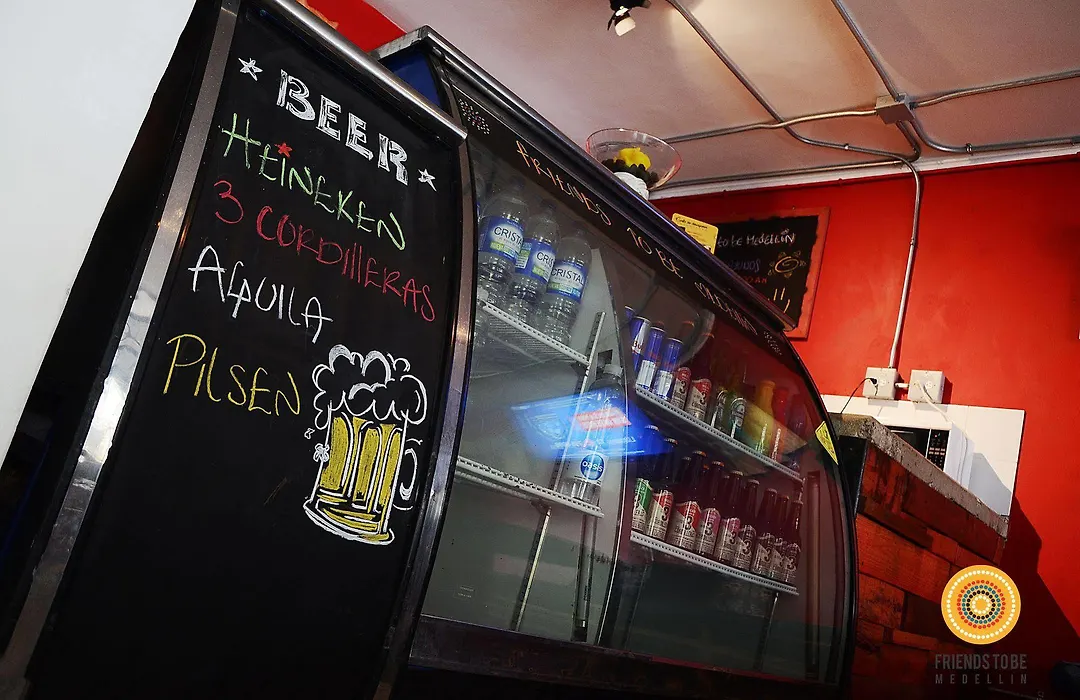 BEER
HEINEKEN
3 CORDIllERAS
AQUILA
PilSEN
FRIENDS TO BE
CRISTAL
CRISTAL
oasis
to be MEDELLIN
FRIENDS TO BE
MEDELLIN